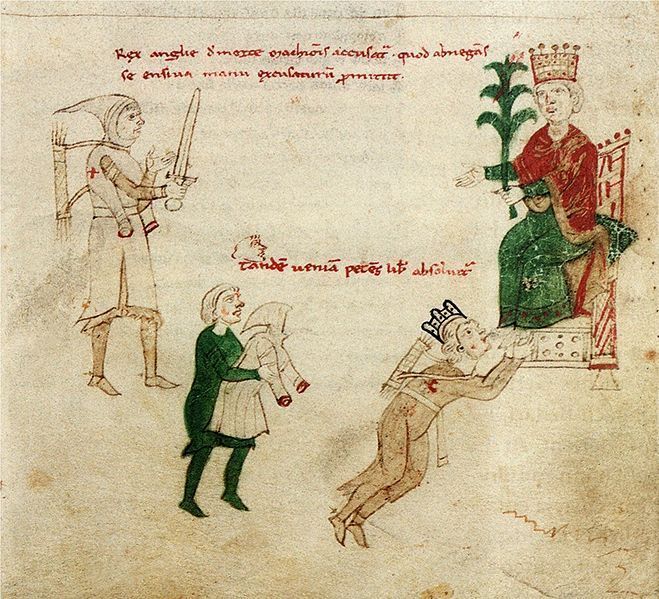 Rex anglie d̄ morte marchiōis accusatᷣ · quod abnegās
se ensiua manu excusaturū ꝓmittit.
tandē ueniā petēs lib̄ absoluitᷣ